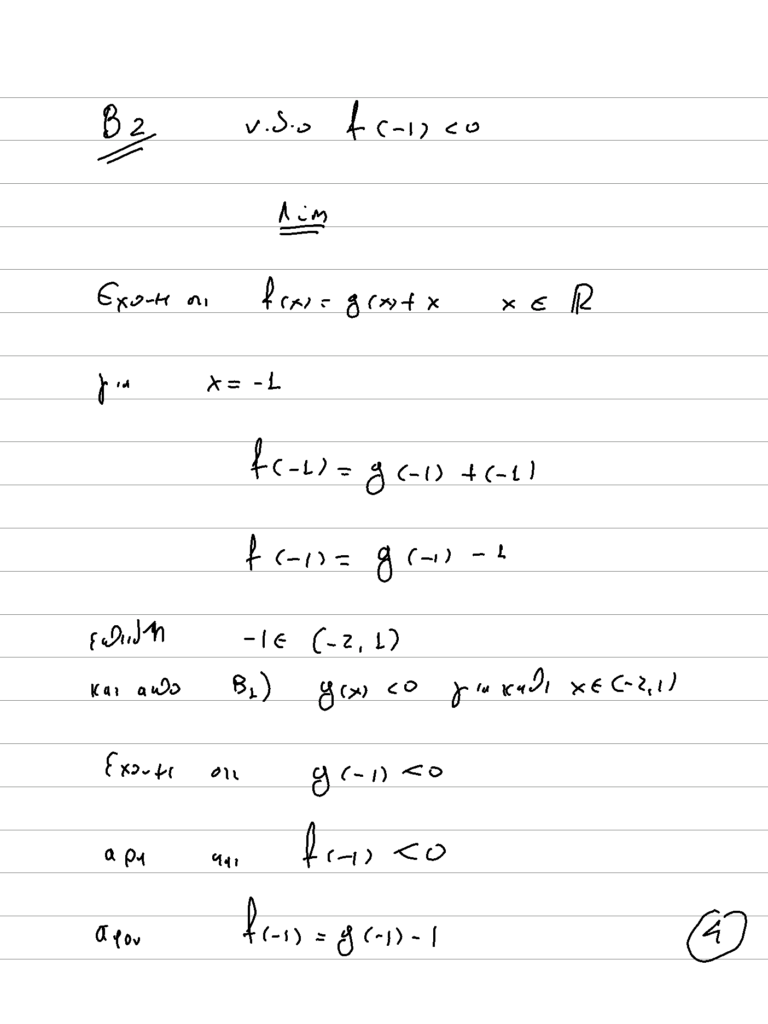 B2 ν.δ.ο f(-1) < 0
Λύση
Έχουμε ότι f(x) = g(x) + x x ∈ ℝ
για x = -1
f(-1) = g(-1) + (-1)
f(-1) = g(-1) - 1
επειδή -1 ∈ (-2, 1)
και από B1) g(x) < 0 για κάθε x ∈ (-2, 1)
Έχουμε ότι g(-1) < 0
αρα και f(-1) < 0
αφου f(-1) = g(-1) - 1
4